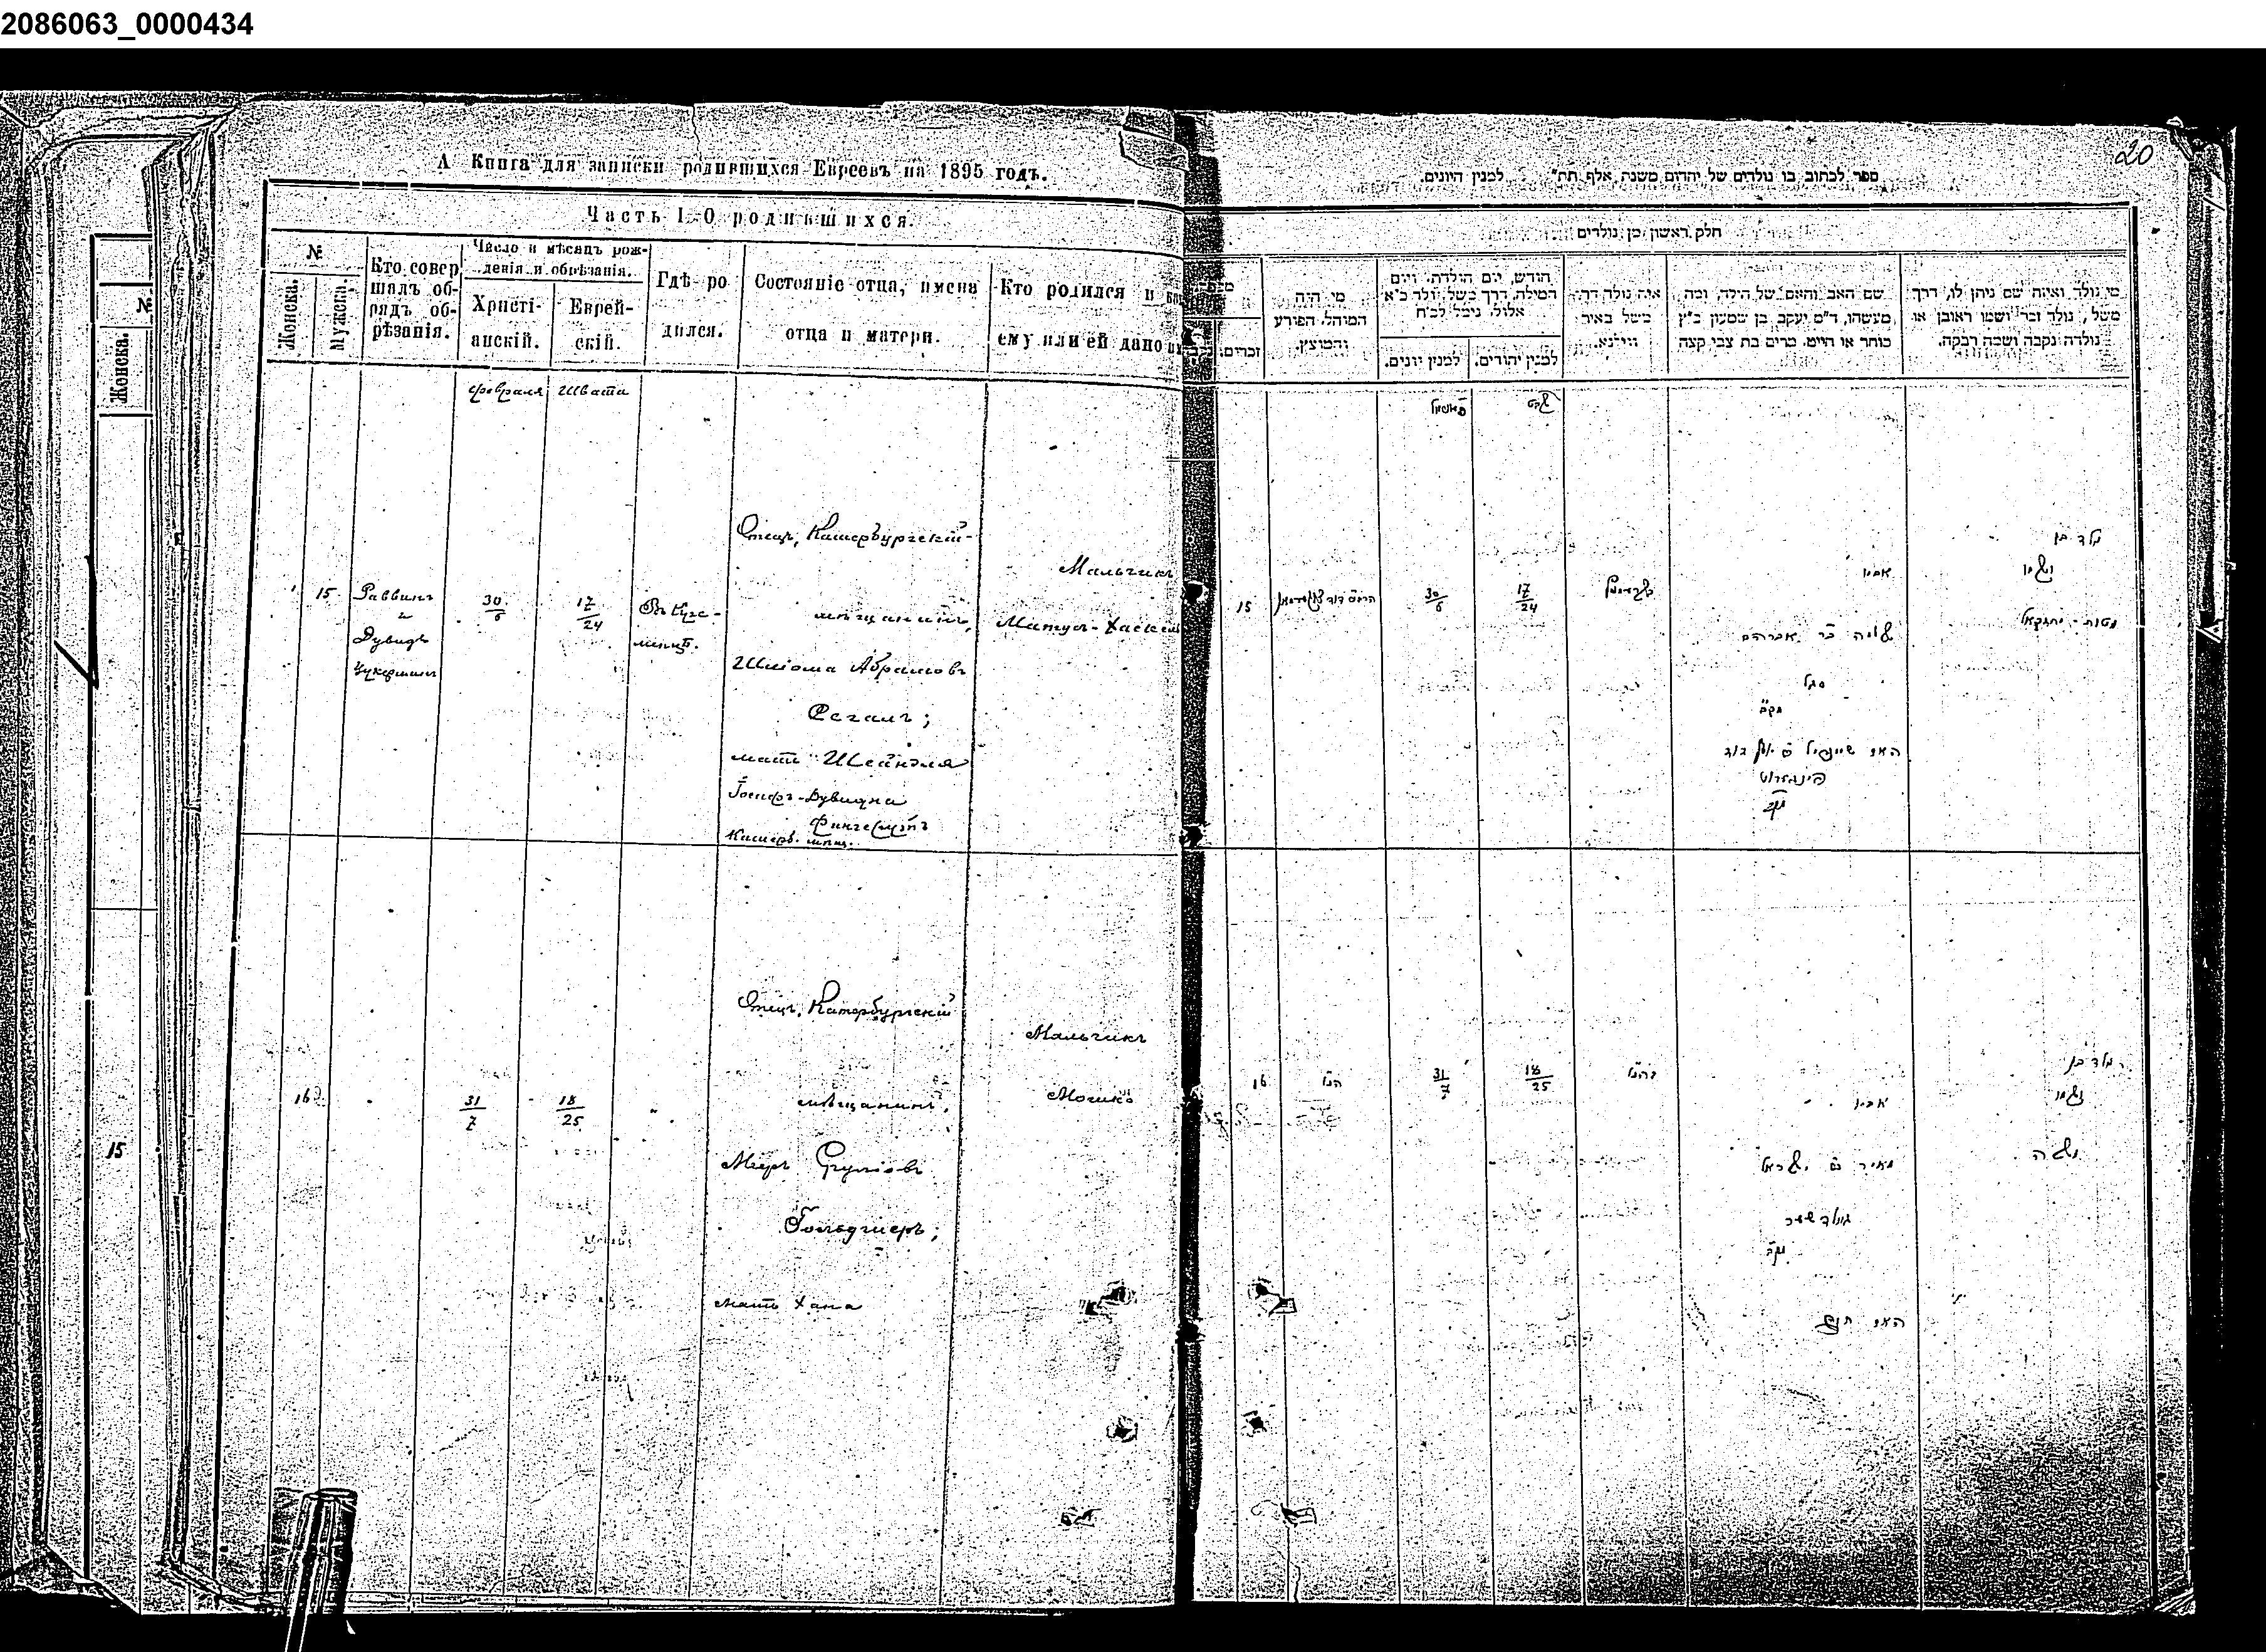 2086063_0000434
20
А Книга для записки родившихся Евреевъ на 1895 годъ.
Часть I. О родившихся.
№
Женска.
Мужска.
Кто совершалъ обрядъ обрѣзанія.
Число и мѣсяцъ рожденія и обрѣзанія.
Христіанскій.
Еврейскій.
Гдѣ родился.
Состояніе отца, имена отца и матери.
Кто родился и
ему или ей дано
Февраля
Швата
15
Раввинъ
и
Дувидъ
Цукерманъ
30
6
17
24
Отецъ, Катербургскій
мѣщанинъ,
Шлiома Абрамовъ
Сегалъ;
мать Шейндля
Іосифъ-Дувидна
Катерб. мѣщ.
Мальчикъ
Матусъ-Хаскель
16
31
7
18
25
Отецъ, Катербургскій
мѣщанинъ,
Мееръ Сруліовъ
мать Хана
Мальчикъ
Мошко
№
Женска.
15
ספר לכתוב בו נולדים של יהדום משנת אלף תת" למנין היונים.
חלק ראשון מן נולדים
זכרים.
מי היה
המוהל, הפורע
והמוצץ.
חודש, יום הולדה, ויום
המילה, דרך משל, נולד כ"א
אלול, נימל לכ"ח
למנין יונים.
למנין יהודים.
איה נולד דרך
משל באיר
ווילנא.
שם האב והאם של הילד, ומה
מעשהו, ד"מ יעקב בן שמעון כ"ץ
סוחר או חייט, מרים בת צבי קצב
מי נולד ואיזה שם ניתן לו, דרך
משל, נולד זכר ושמו ראובן או
נולדה נקבה ושמה רבקה.
שבט
15
30
6
17
24
נולד בן
ושמו
מטות - יחזקאל
אביו
שלמה בר אברהם
סגל
16
הנ"ל
31
7
18
25
נולד בן
ושמו
משה
אביו
מאיר ב ישראל
האם חנה